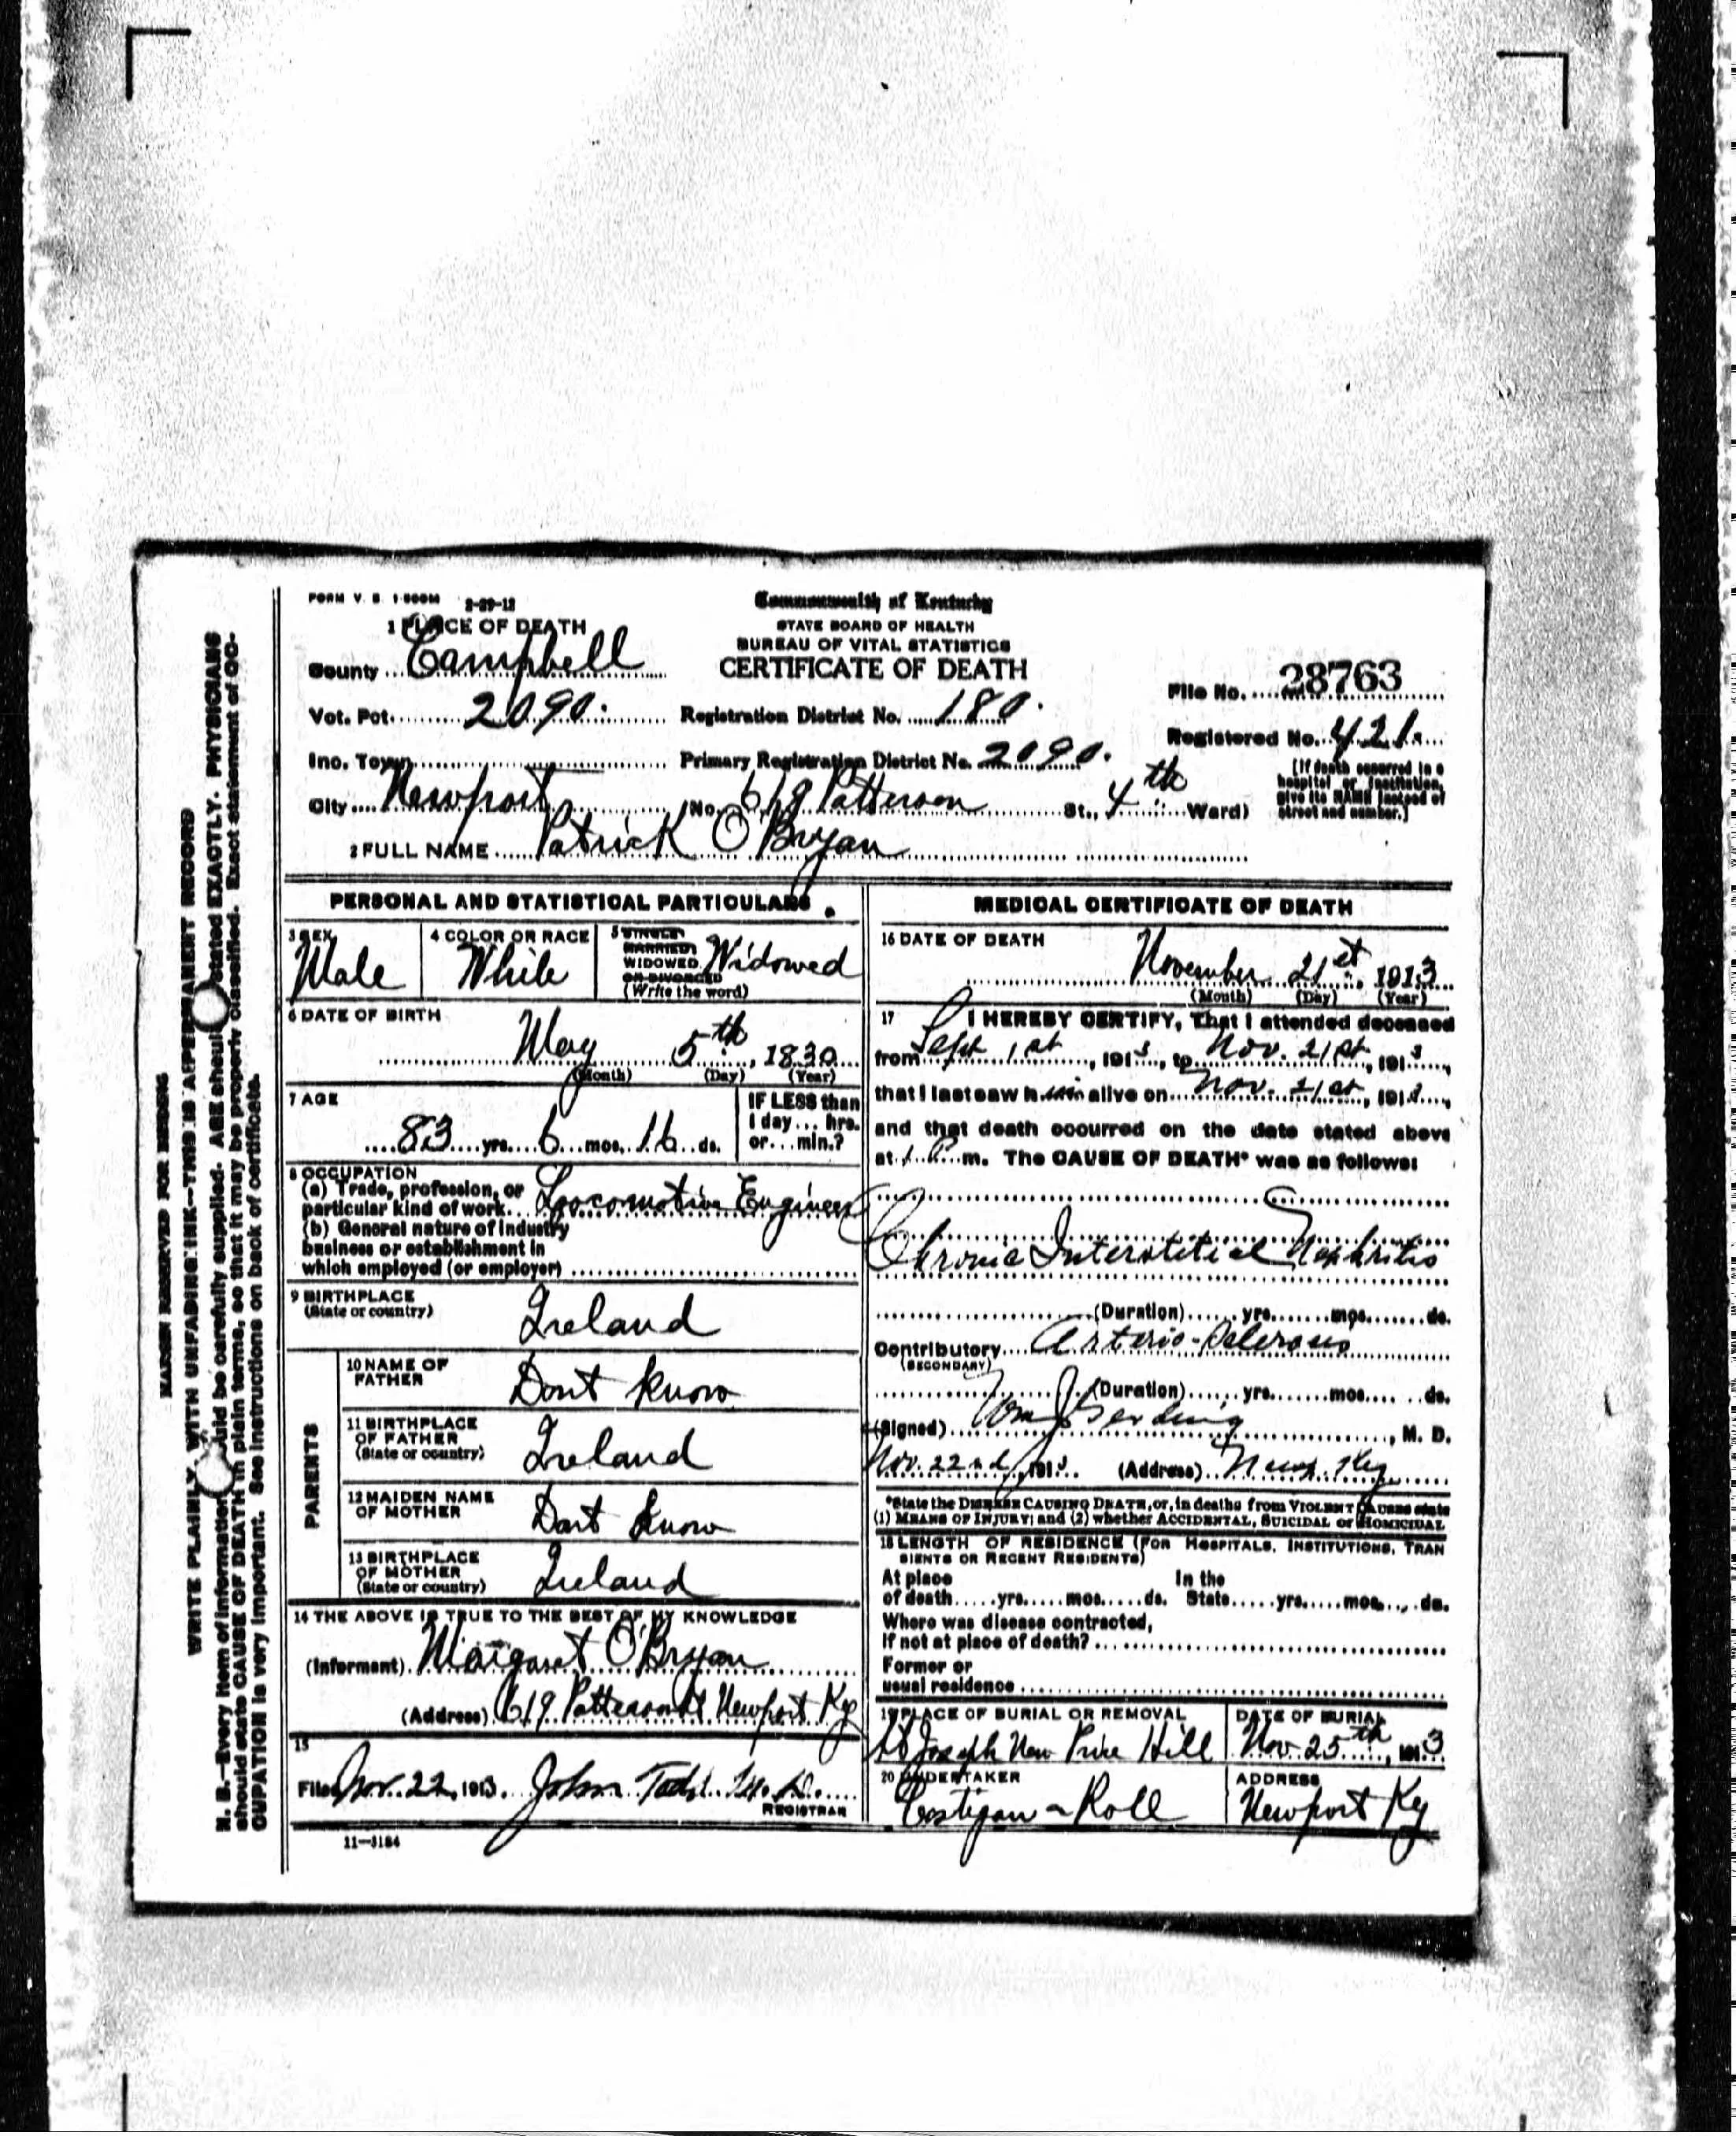 FORM V. S. 1-500M 2-29-12
Commonwealth of Kentucky
STATE BOARD OF HEALTH
BUREAU OF VITAL STATISTICS
CERTIFICATE OF DEATH
1 PLACE OF DEATH
County Campbell
File No. 28763
Vot. Pct. 2090. Registration District No. 180.
Registered No. 421.
Inc. Town Primary Registration District No. 2090.
City Newport (No. 619 Patterson St., 4th Ward)
[If death occurred in a
hospital or institution,
give its NAME instead of
street and number.]
2 FULL NAME Patrick O'Bryan
PERSONAL AND STATISTICAL PARTICULARS
3 SEX Male
4 COLOR OR RACE White
5 SINGLE
MARRIED
WIDOWED
OR DIVORCED
(Write the word)
Widowed
6 DATE OF BIRTH
May 5th, 1830
(Month) (Day) (Year)
7 AGE
83 yrs. 6 mos. 16 ds.
IF LESS than
1 day... hrs.
or... min.?
8 OCCUPATION
(a) Trade, profession, or
particular kind of work Locomotive Engineer
(b) General nature of industry
business or establishment in
which employed (or employer)
9 BIRTHPLACE
(State or country) Ireland
PARENTS
10 NAME OF
FATHER Dont Know
11 BIRTHPLACE
OF FATHER
(State or country) Ireland
12 MAIDEN NAME
OF MOTHER Dont Know
13 BIRTHPLACE
OF MOTHER
(State or country) Ireland
14 THE ABOVE IS TRUE TO THE BEST OF MY KNOWLEDGE
(Informant) Margaret O'Bryan
(Address) 619 Patterson St Newport Ky
15
Filed Nov. 22, 1913. John Todd M.D.
REGISTRAR
11—3184
MEDICAL CERTIFICATE OF DEATH
16 DATE OF DEATH
November 21st, 1913
(Month) (Day) (Year)
17 I HEREBY CERTIFY, That I attended deceased
from Sept 1st, 1913, to Nov. 21st, 1913,
that I last saw him alive on Nov. 21st, 1913,
and that death occurred on the date stated above
at 1 P. m. The CAUSE OF DEATH* was as follows:
Chronic Interstitial Nephritis
(Duration) yrs. mos. ds.
Contributory Arterio-Sclerosis
(SECONDARY)
(Duration) yrs. mos. ds.
(Signed) Wm J Gerding, M. D.
Nov. 22nd, 1913. (Address) Newp. Ky
*State the DISEASE CAUSING DEATH, or, in deaths from VIOLENT CAUSES state
(1) MEANS OF INJURY; and (2) whether ACCIDENTAL, SUICIDAL or HOMICIDAL
18 LENGTH OF RESIDENCE (FOR HOSPITALS, INSTITUTIONS, TRAN
SIENTS OR RECENT RESIDENTS)
At place In the
of death yrs. mos. ds. State yrs. mos. ds.
Where was disease contracted,
If not at place of death?
Former or
usual residence
19 PLACE OF BURIAL OR REMOVAL
St Joseph New Price Hill
DATE OF BURIAL
Nov. 25th, 1913
20 UNDERTAKER
Costigan & Roll
ADDRESS
Newport Ky
MARGIN RESERVED FOR BINDING
WRITE PLAINLY, WITH UNFADING INK—THIS IS A PERMANENT RECORD
N. B.—Every item of information should be carefully supplied. AGE should be stated EXACTLY. PHYSICIANS
should state CAUSE OF DEATH in plain terms, so that it may be properly classified. Exact statement of OC-
CUPATION is very important. See instructions on back of certificate.